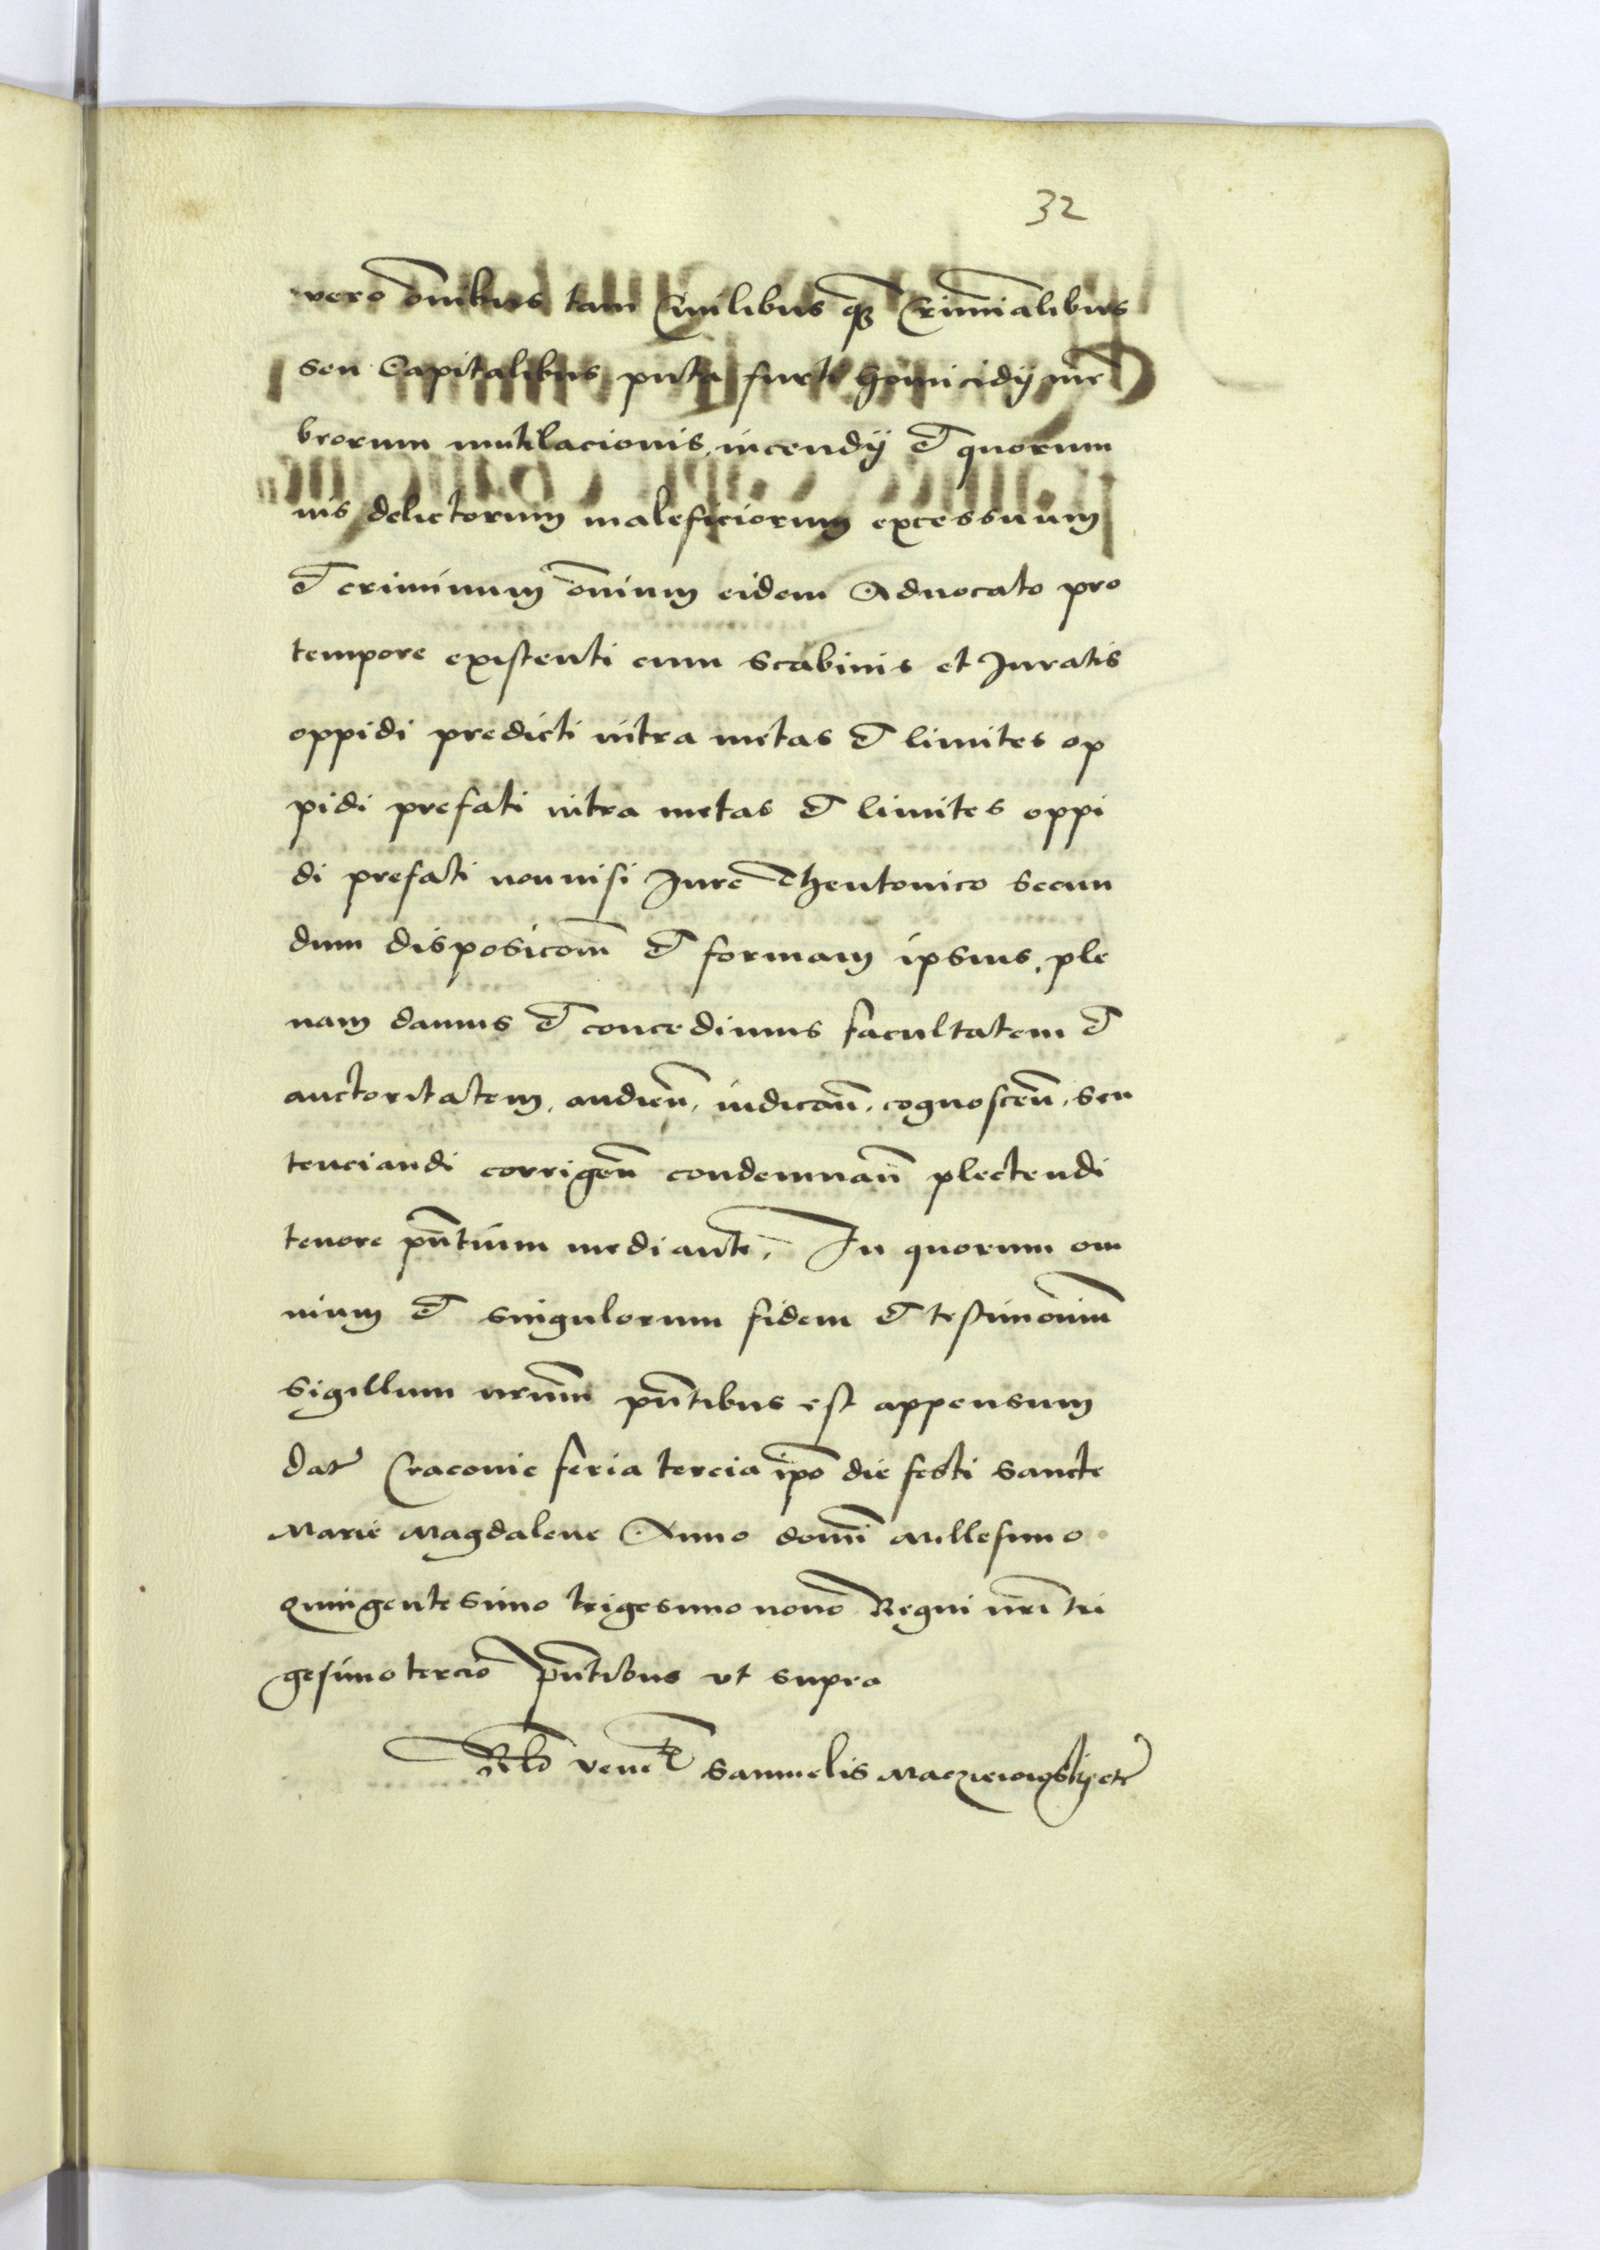 32
vero om̅ibus tam Ciuilibus q̅z Crimi̅alibus
seu Capitalibus puta furti homicidij me̅
brorum mutilacionis, incendij et quorum
uis delictorum maleficiorum excessuum
et criminum om̅ium eidem Aduocato pro
tempore existenti cum scabinis et Juratis
oppidi predicti intra metas et limites op
pidi prefati intra metas et limites oppi
di prefati nonnisi Jure Theutonico secun
dum disposico̅m et formam ipsius, ple
nam damus et concedimus facultatem et
auctoritatem, audien̅, iudican̅, cognoscen̅, sen
tenciandi corrigen̅ condemnan̅ plectendi
tenore pn̅tium mediante, In quorum om
nium et singulorum fidem et testimoniu̅
sigillum nr̅um pn̅tibus est appensum
dat Cracouie feria tercia ip̅o die festi sancte
Marie Magdalene Anno domi̅ Millesimo
Quingentesimo trigesimo nono Regni nr̅i tri
gesimo tercio Pn̅tibus vt supra
Rlo vene̅ Samuelis Maczieiowskij etc